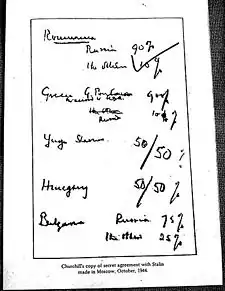 Roumania
Russia 90%
The others 10%
Greece G. Britain 90%
in accord w USA
Russia 10%
Yugo Slavia 50/50 %
Hungary 50/50 %
Bulgaria Russia 75%
The others 25%
Churchill's copy of secret agreement with Stalin
made in Moscow, October, 1944.